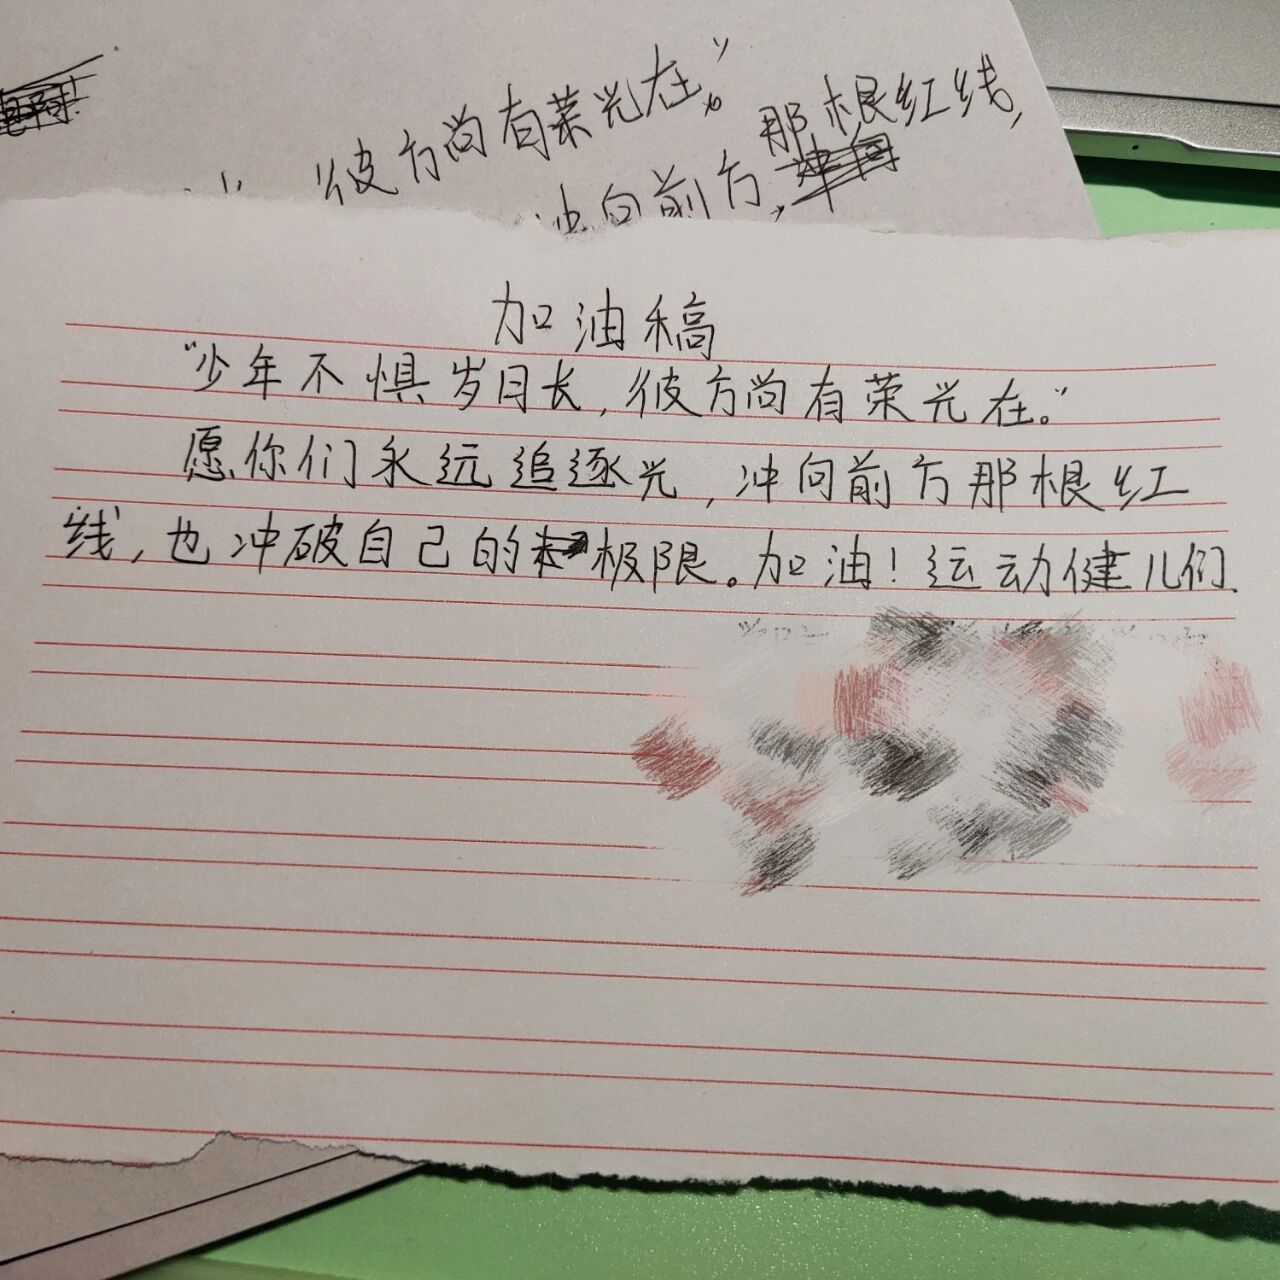 彼方尚有荣光在。”
那根红线,
冲向前方,
加油稿
“少年不惧岁月长,彼方尚有荣光在。”
愿你们永远追逐光,冲向前方那根红
线,也冲破自己的极限。加油!运动健儿们